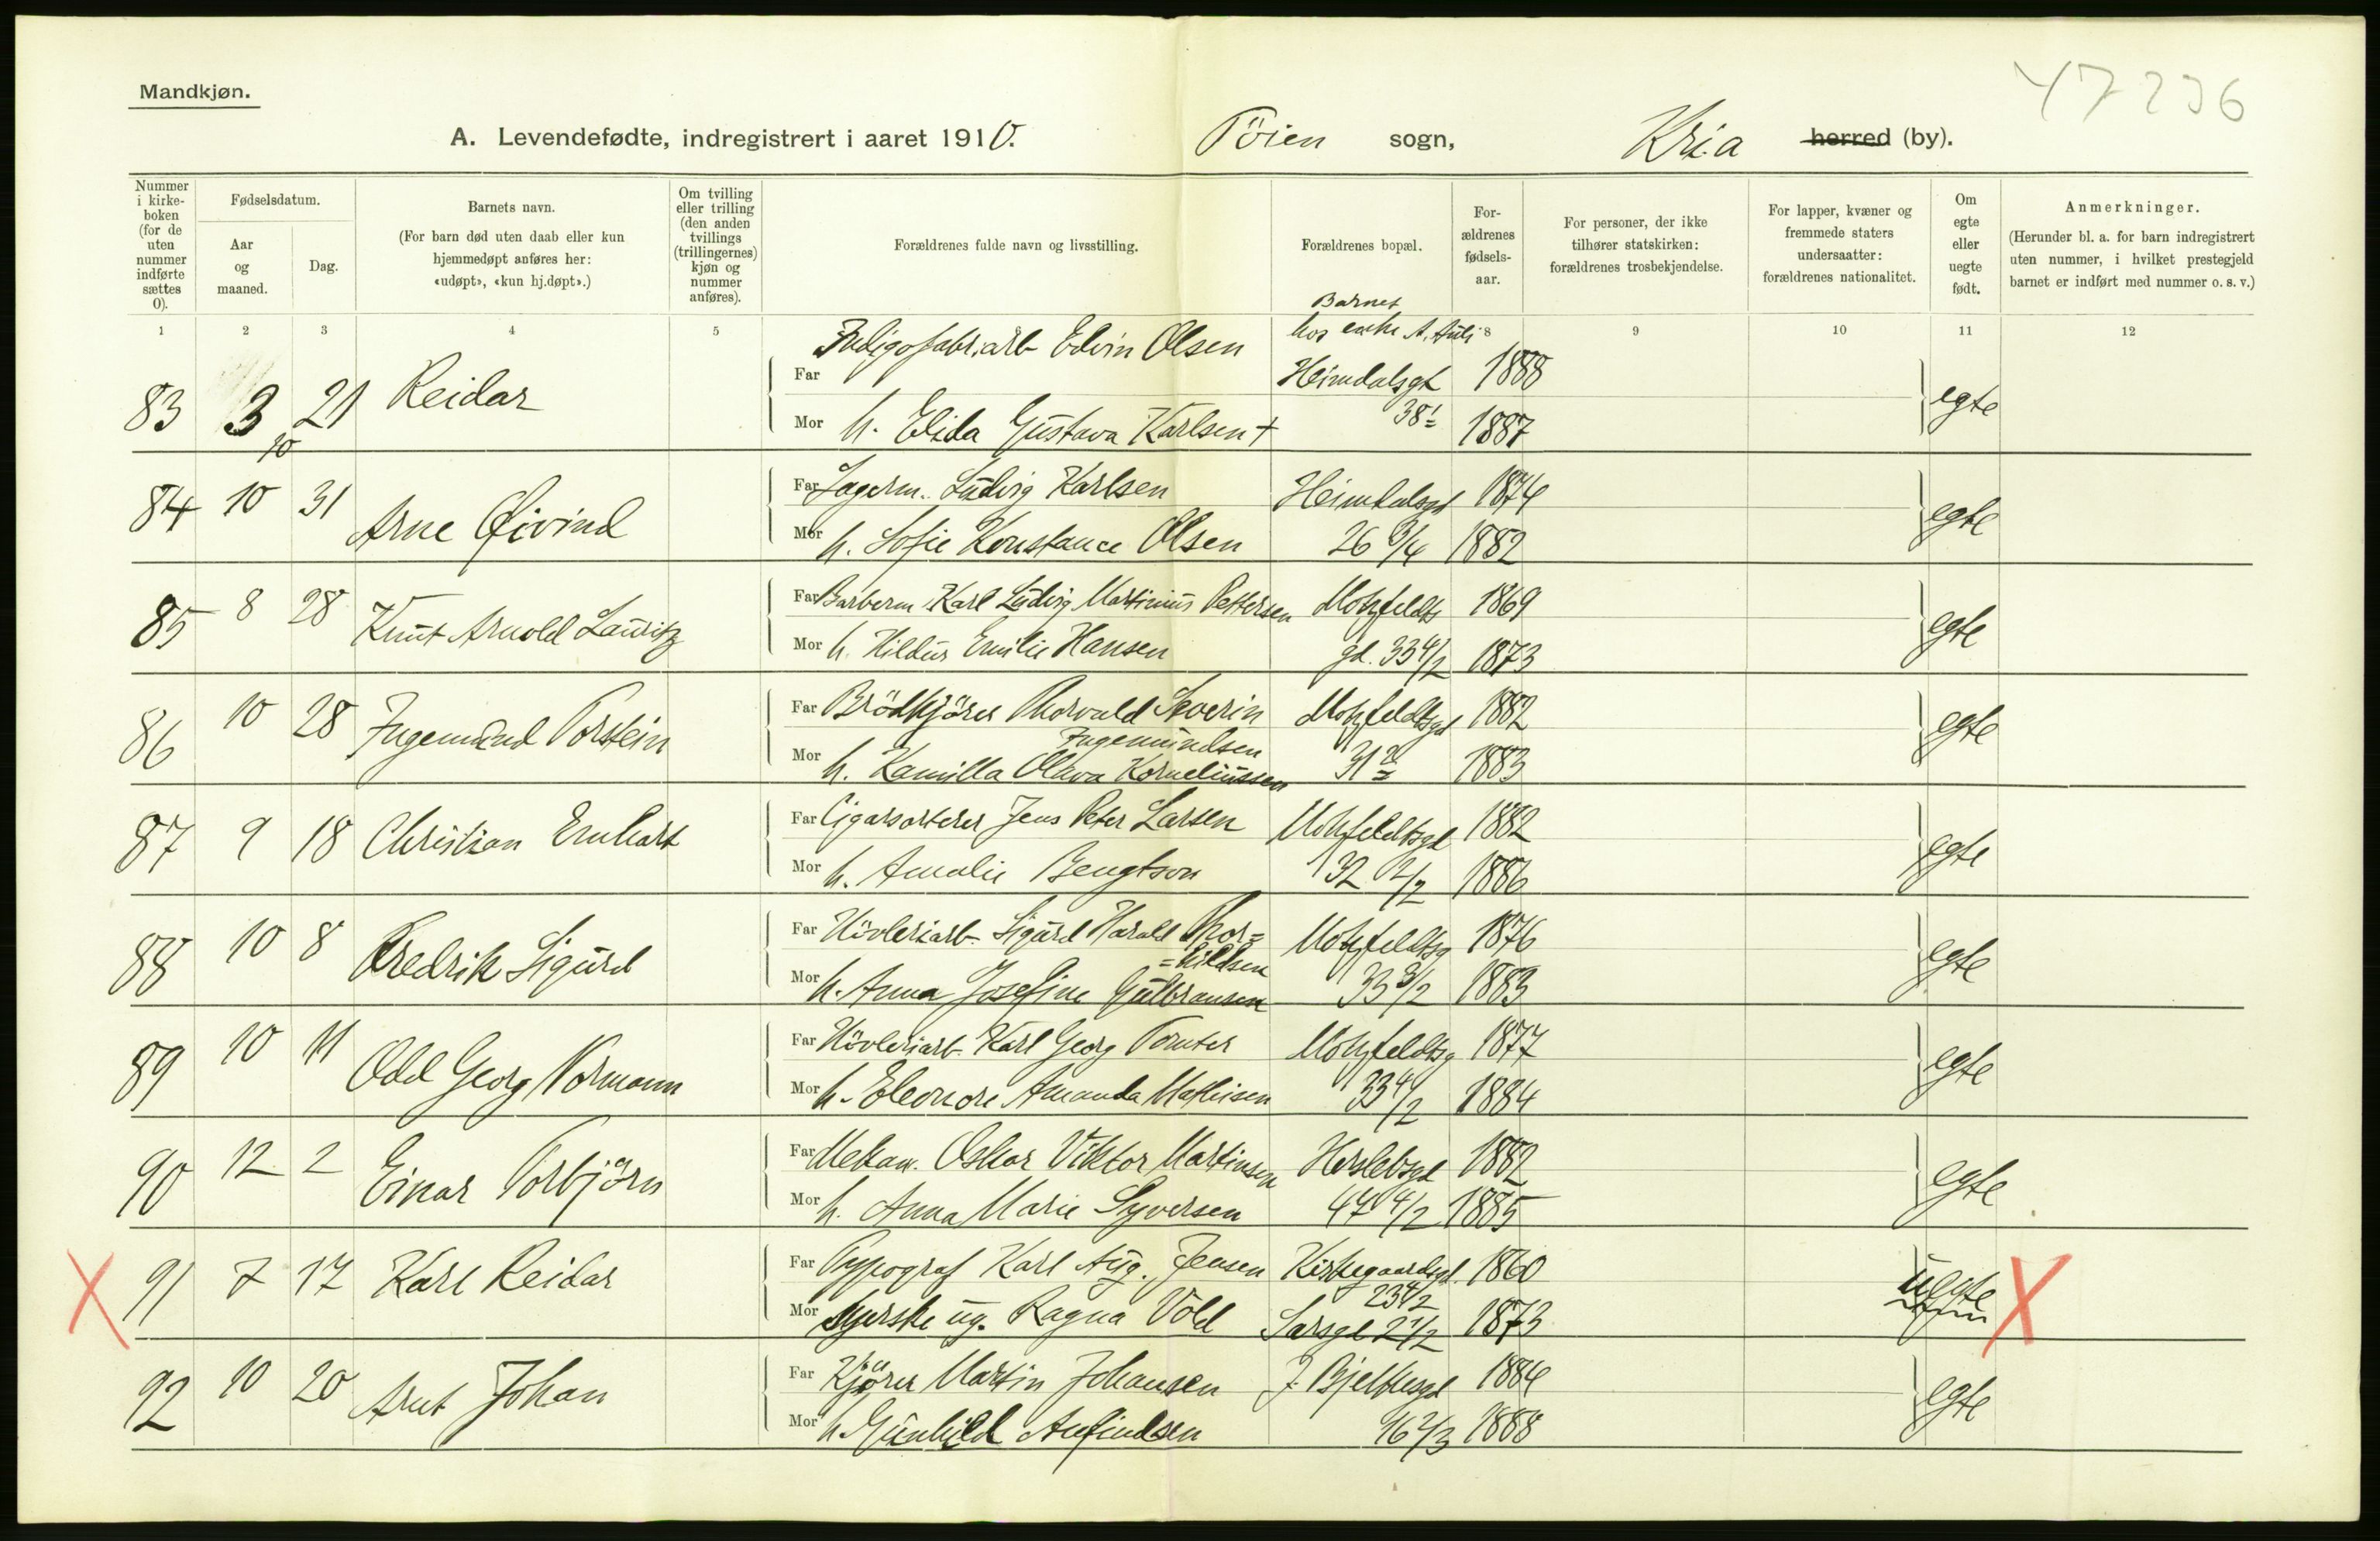 47236
Mandkjøn.
A. Levendefødte, indregistrert i aaret 1910. Töien sogn, Kr.a herred (by).
Nummer i kirke-boken (for de uten nummer indførte sættes 0).
Fødselsdatum.
Aar og maaned.
Dag.
Barnets navn.
(For barn død uten daab eller kun hjemmedøpt anføres her: «udøpt», «kun hj.døpt».)
Om tvilling eller trilling (den anden tvillings (trillingernes) kjøn og nummer anføres).
Forældrenes fulde navn og livsstilling.
Forældrenes bopæl.
For-ældrenes fødsels-aar.
For personer, der ikke tilhører statskirken: forældrenes trosbekjendelse.
For lapper, kvæner og fremmede staters undersaatter: forældrenes nationalitet.
Om egte eller uegte født.
Anmerkninger.
(Herunder bl. a. for barn indregistrert uten nummer, i hvilket prestegjeld barnet er indført med nummer o. s. v.)
1 2 3 4 5 8 9 10 11 12
Barnet
hos enke A.
83 3 10 21 Reidar
Far Indigofabr.arb Edvin Olsen Heimdalsgt 1888
Mor h. Elida Gustava Karlsen + 38 1 1887
egte
84 10 31 Arne Øivind
Far Lagerm. Ludvig Karlsen Heimdalsgt 1874
Mor h. Sofie Konstance Olsen 26 3/4 1882
egte
85 8 28 Knut Arnold Lauritz
Far Barberm. Karl Ludvig Martinius Pettersen Motzfeldts 1869
Mor h. Hildur Emilie Hansen gd. 33 4/2 1873
egte
86 10 28 Ingemund Torstein
Far Brödkjörer Thorvald Severin Motzfeldtsgt 1882
Ingemundsen
Mor h. Kamilla Olava Korneliussen 31 2 1883
egte
87 9 18 Christian Ernhart
Far Cigarsorterer Jens Peter Larsen Motzfeldtsgt 1882
Mor h. Amalie Bengtson 32 2/2 1886
egte
88 10 8 Fredrik Sigurd
Far Hövleriarb. Sigurd Harald Thor=
=kildsen Motzfeldtsg 1876
Mor h. Anna Josefine Gulbransen 33 3/2 1883
egte
89 10 11 Odd Georg Normann
Far Hövleriarb. Karl Georg Tomter Motzfeldtsg 1877
Mor h. Eleonore Amanda Mathisen 33 4/2 1884
egte
90 12 2 Einar Torbjörn
Far Mekan. Oskar Viktor Martinsen Herslebsgt 1882
Mor h. Anna Marie Syversen 47 4/2 1885
egte
X 91 7 17 Karl Reidar
Far Typograf Karl Aug. Jensen Kirkegaardsgt. 1860
23 4/2
Mor Syerske ug. Ragna Vold Sarsgt 2 1/2 1873
uegte
X
92 10 20 Arnt Johan
Far Kjörer Martin Johansen J. Bjelkesgt 1884
Mor h. Gunhild Anfindsen 16 2/3 1888
egte